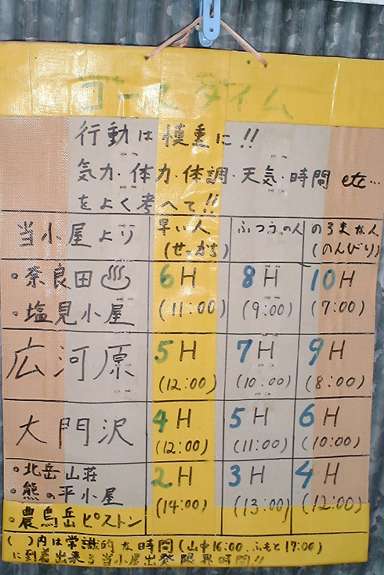 コースタイム
行動は慎重に!!
気力・体力・体調・天気・時間 etc…
をよく考へて!!
当小屋より 早い人 (せっかち) ふつうの人 のろまな人 (のんびり)
・奈良田♨ 6H 8H 10H
・塩見小屋 (11:00) (9:00) (7:00)
広河原 5H 7H 9H
(12:00) (10:00) (8:00)
大門沢 4H 5H 6H
(12:00) (11:00) (10:00)
・北岳山荘 2H 3H 4H
・熊の平小屋 (14:00) (13:00) (12:00)
・農鳥岳ピストン
( )内は常識的な時間(山中16:00、ふもと17:00)
に到着出来る当小屋出発限界時間!!